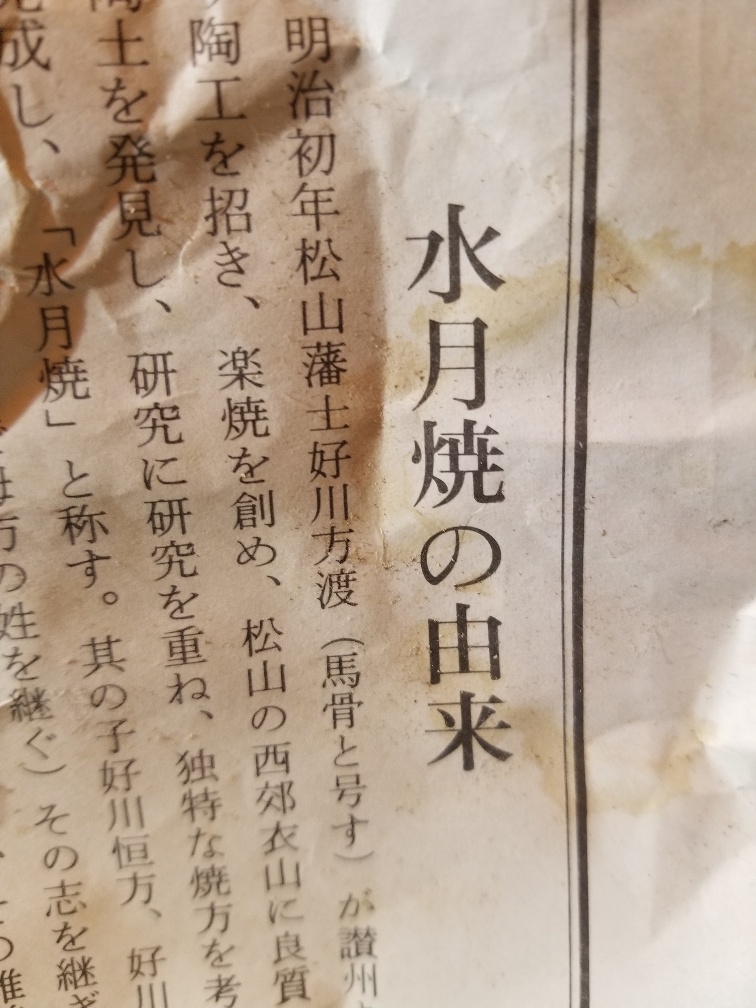 水月焼の由来
明治初年松山藩士好川方渡（馬骨と号す）が讃州
陶工を招き、楽焼を創め、松山の西郊衣山に良質
陶土を発見し、研究に研究を重ね、独特な焼方を考
成し、「水月焼」と称す。其の子好川恒方、好川
の姓を継ぐ）その志を継ぎ